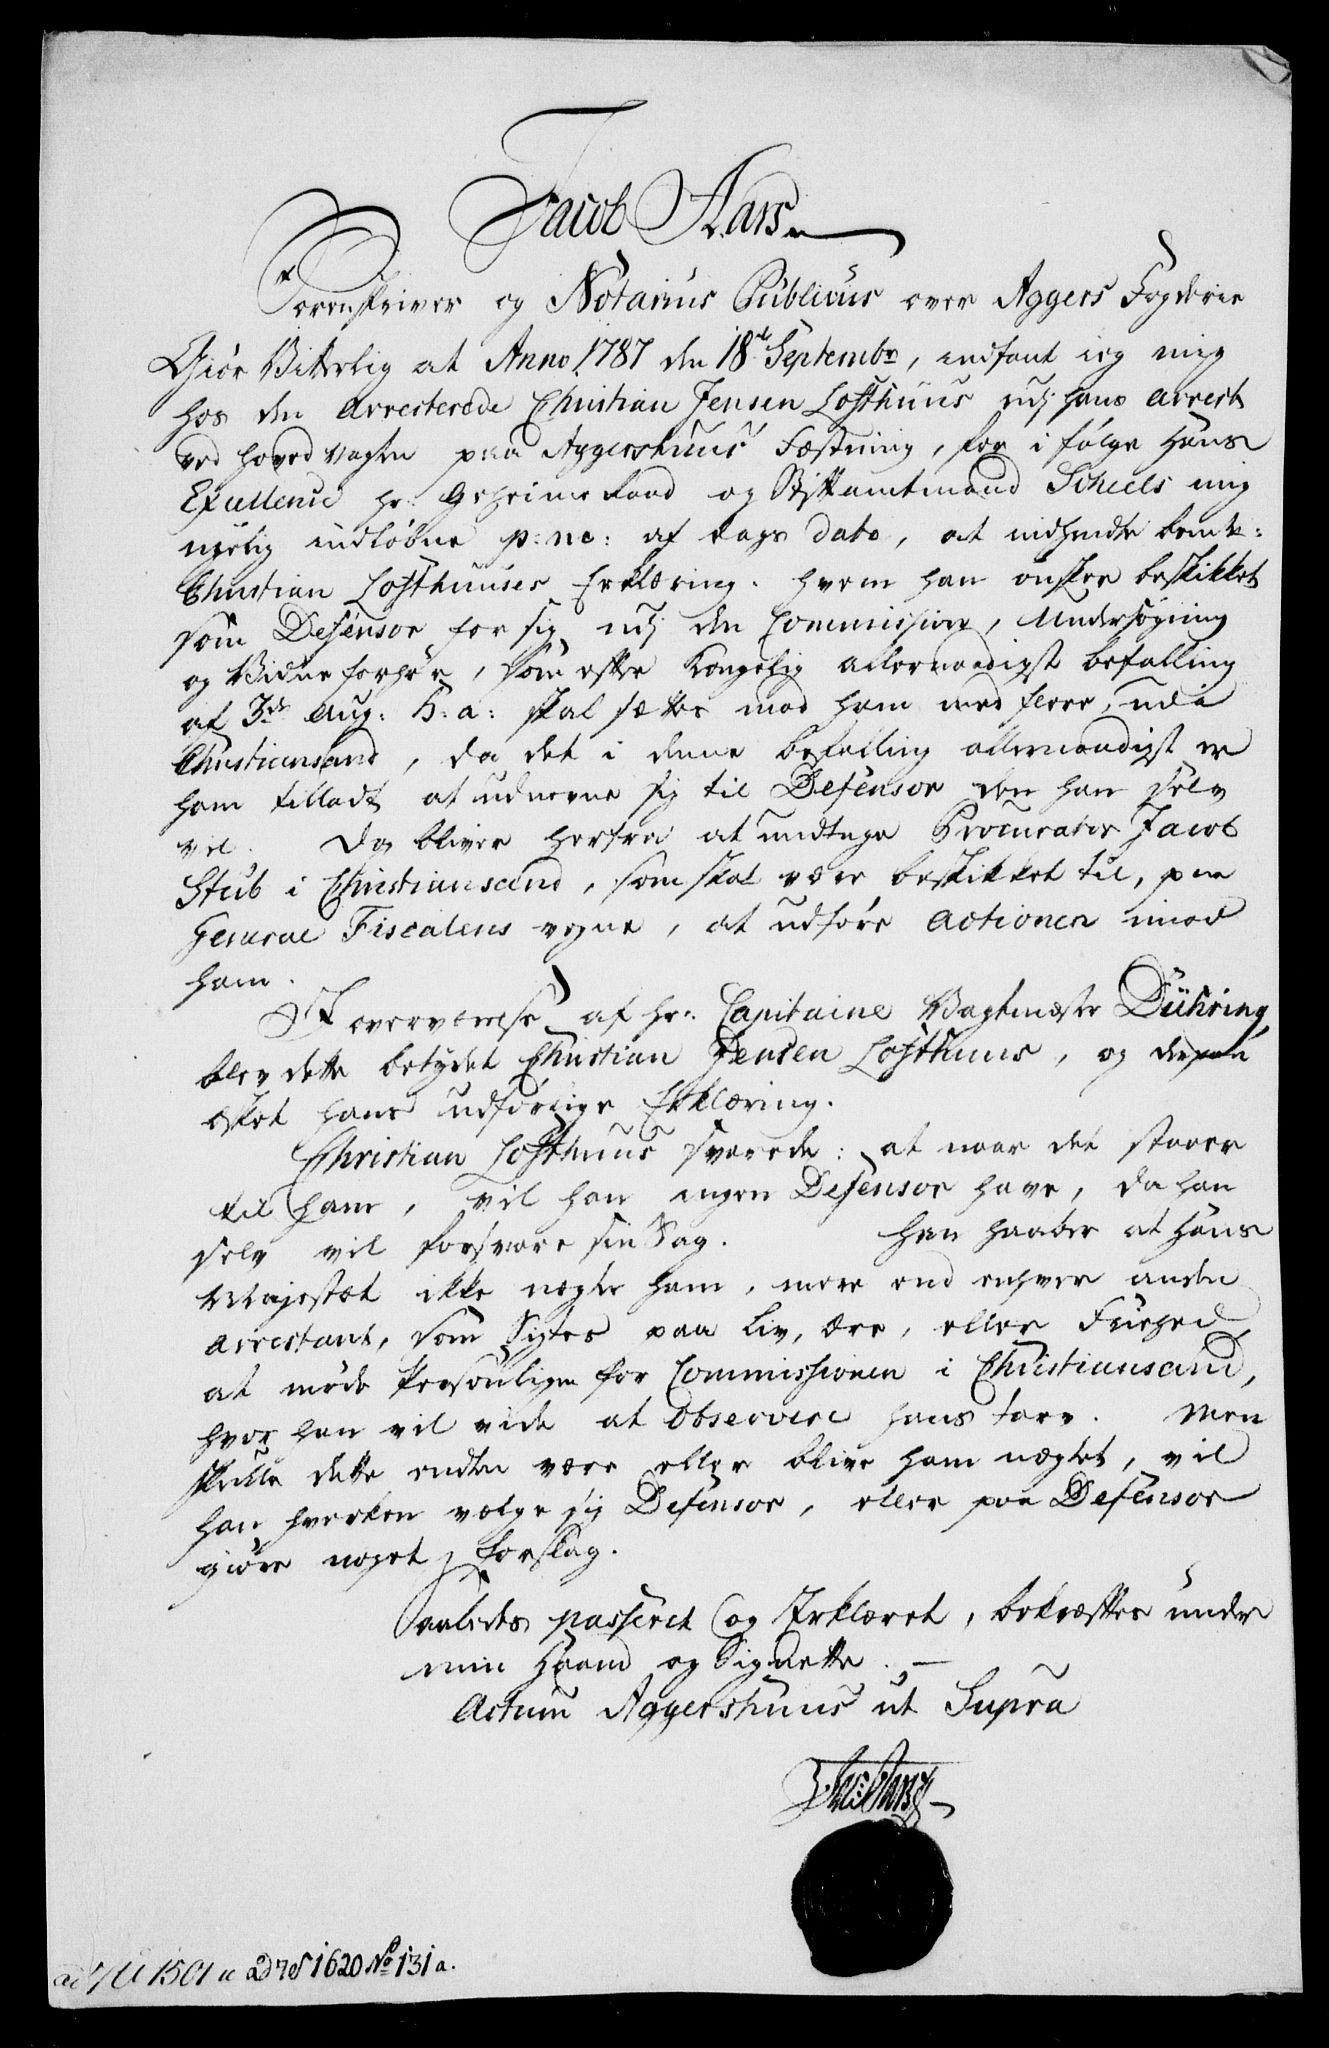 Jacob Aars
Sorenskriver og Notarius Publicus over Aggers Fogderie
Giør Vitterlig at Anno 1787 den 18de Septembr, indfant ieg mig
hos den Arresterede Christian Jensen Lofthuus udj hans arrest
ved hoved vagten paa Aggershuus Fæstning, for i følge Hans
Exellence hr: Geheime Raad og Stiftamtmand Scheels mig
nyelig indløbne p: m: af dags dato, at indhendte bemte:
Christian Lofthuuses Erklæring. hvem han ønsker beskikket
som Defensor for sig udj den Commissions, Undersøgning
og Vidneforhør, som efter Kongelig allernaadigst befalling
af 3de Aug: h: a: skal sættes mod ham med flere, udi
Christiansand, da det i denne befalling allernaadigst er
ham tilladt at udnevne sig til Defensor den han selv
vil. Dog bliver herfra at undtage Procurator Jacob
Stub i Christiansand, som skal være beskikket til, paa
General Fiscalens vegne, at udføre Actionen imod
ham.
I overværelse af hr: Capitaine Vagtmester Dühring
blev dette betydet Christian Jensen Lofthuus, og derpaa
æsket hans udførlige Erklæring.
Christian Lofthuus svarede: at naar det staaer
til ham, vil han ingen Defensor have, da han
selv vil forsvare sin Sag. han haaber at Hans
Majestæt ikke negter ham, mere end enhver anden
Arrestant, som Sigtes paa Liv, Ære, eller Friehed,
at møde Personligen for Commissionen i Christiansand,
hvor han vil vide at Observere hans tarv. Men
skulle dette endten være eller blive ham nægtet, vil
han hverken vælge sig Defensor, eller paa Defensor
giøre noget forslag.
Saaledes passeret og Erklæret, bekræftes under
min Haand og Signette. —
Actum Aggershuus ut Supra
JAars
1620 No 131 a.